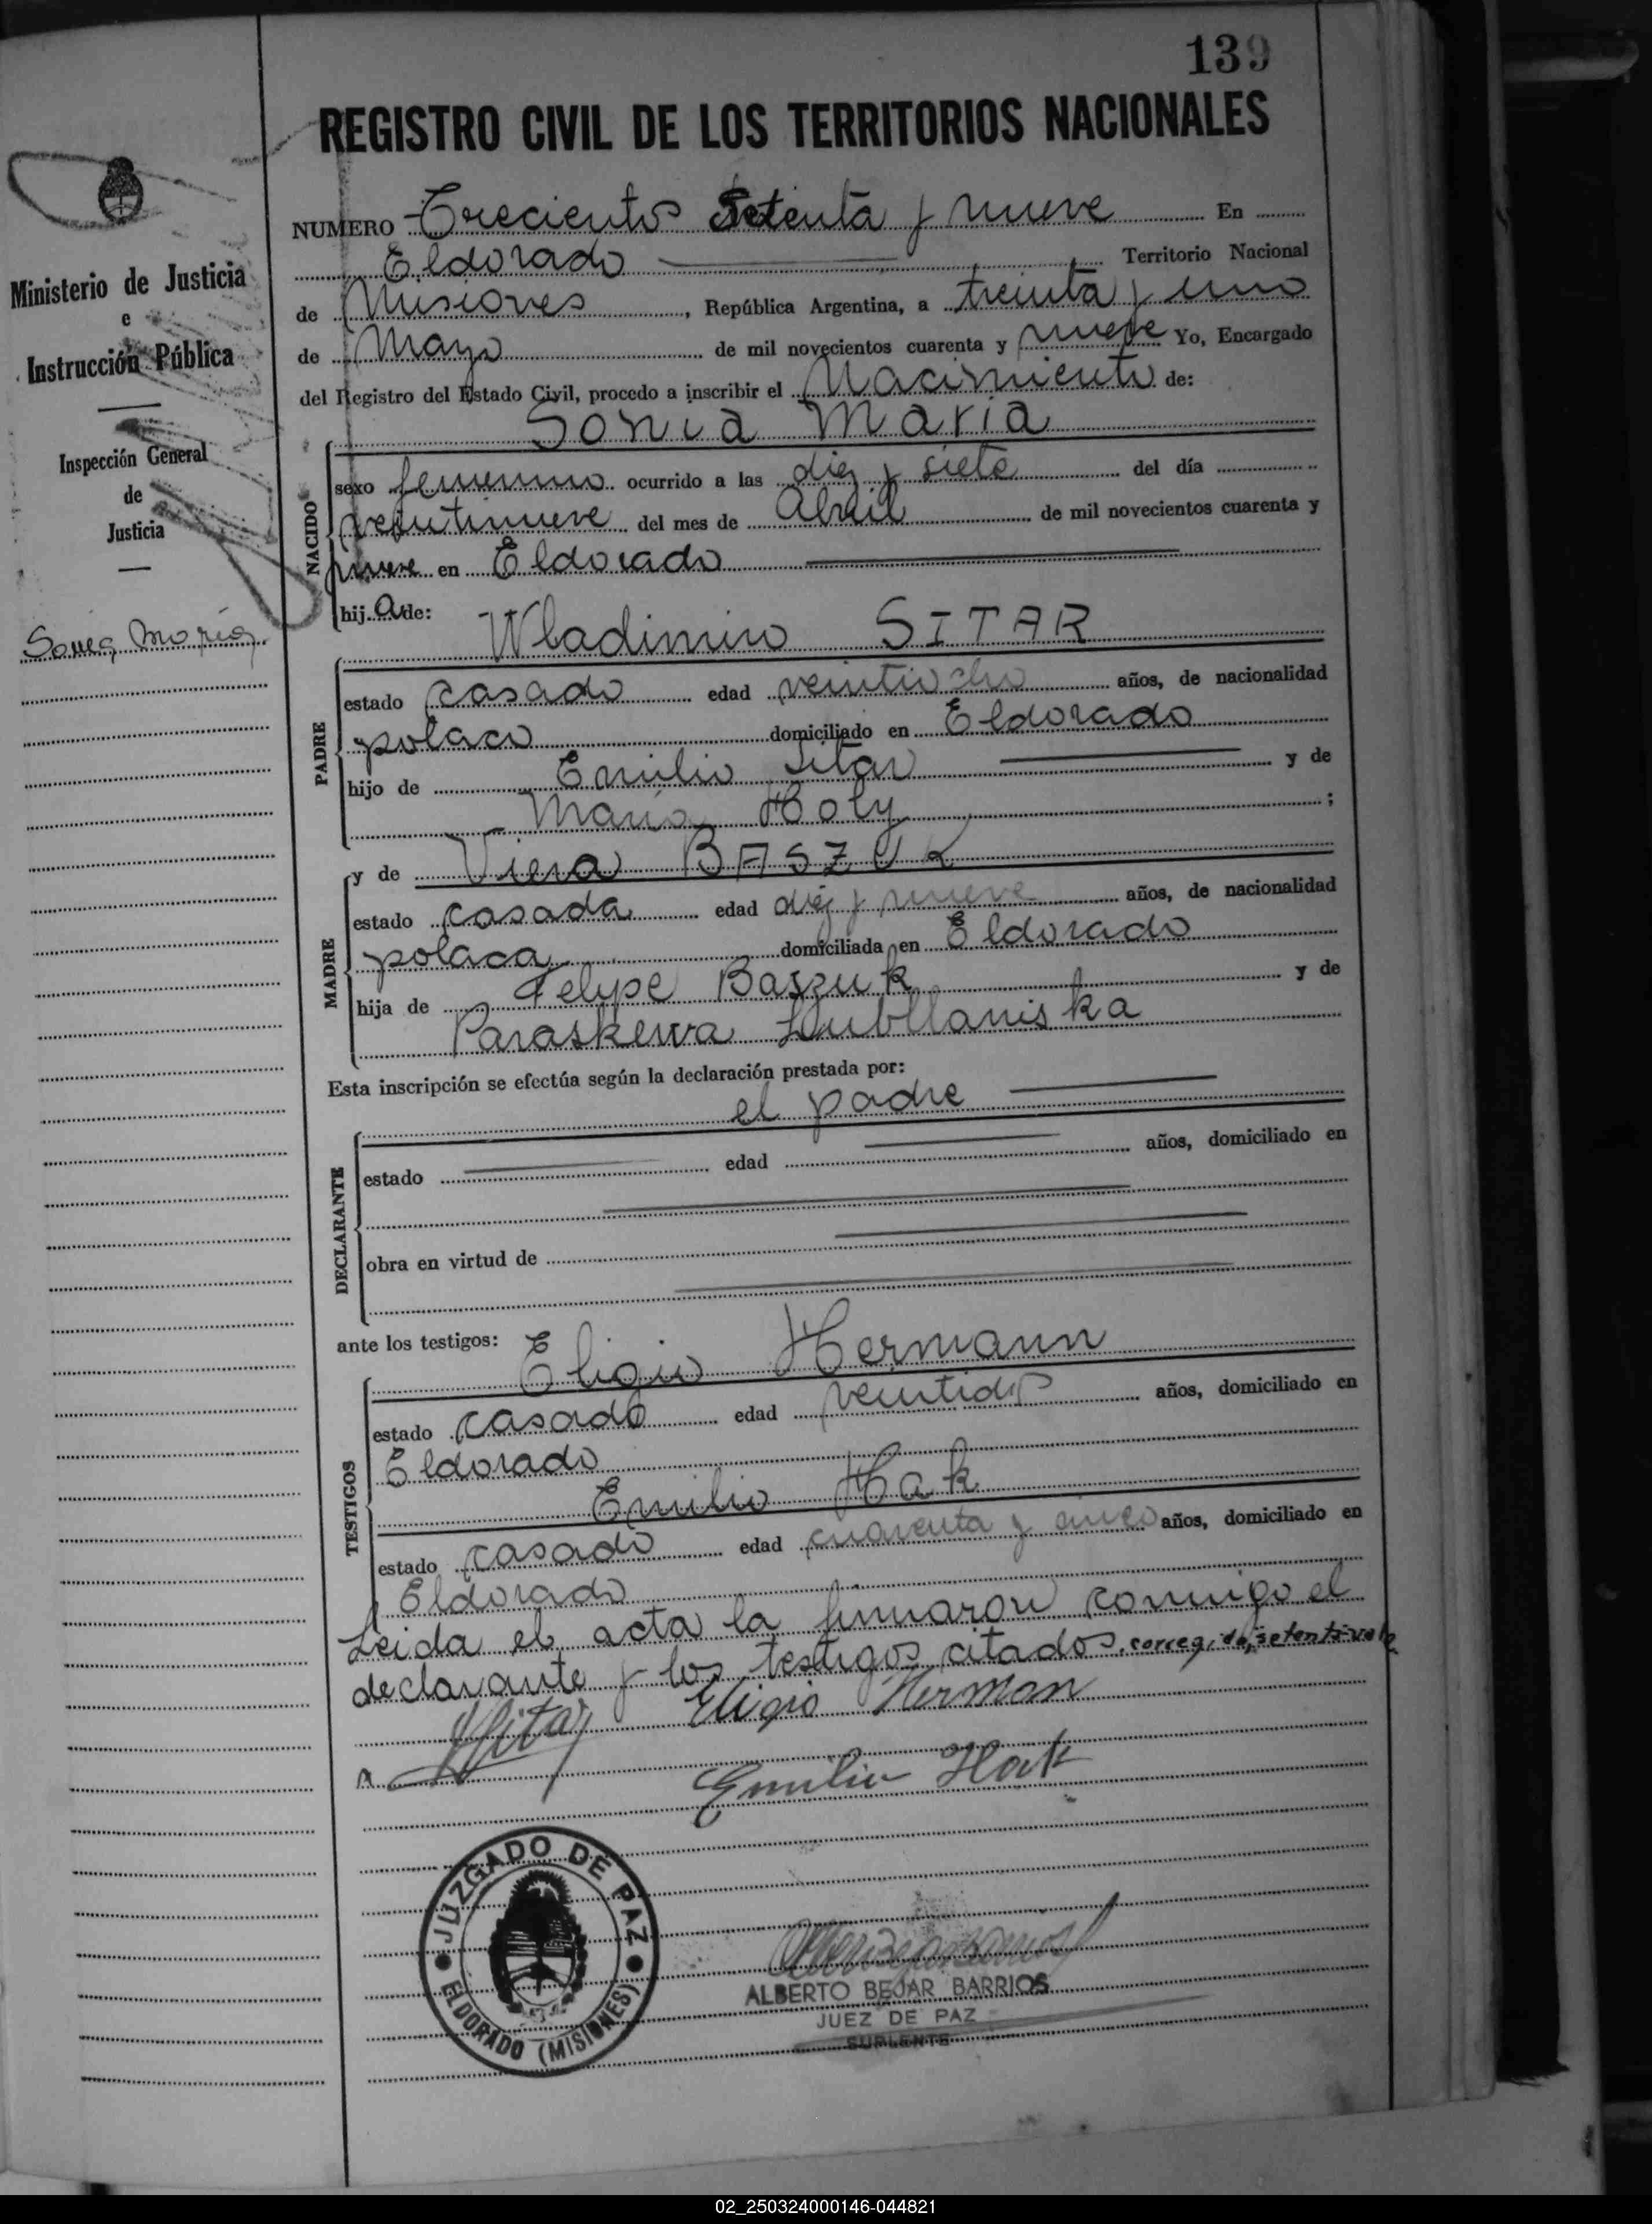 139
REGISTRO CIVIL DE LOS TERRITORIOS NACIONALES
NUMERO Treciento Setenta y nueve En
Eldorado Territorio Nacional
de Misiones, República Argentina, a treinta y uno
de Mayo de mil novecientos cuarenta y nueve Yo, Encargado
del Registro del Estado Civil, procedo a inscribir el Nacimiento de:
Sonia María
NACIDO
sexo femenino ocurrido a las diez y siete del día
veintinueve del mes de Abril de mil novecientos cuarenta y
nueve en Eldorado
hij a de:
Wladimiro SITAR
PADRE
estado casado edad veintiocho años, de nacionalidad
polaco domiciliado en Eldorado
hijo de Emilio Sitar y de
María Holy ;
y de Viera BASZUK
MADRE
estado casada edad diez y nueve años, de nacionalidad
polaca domiciliada en Eldorado
hija de Felipe Baszuk y de
Paraskewa Lubllaniska
Esta inscripción se efectúa según la declaración prestada por:
el padre
DECLARANTE
estado edad años, domiciliado en
obra en virtud de
ante los testigos: Eligio Hermann
TESTIGOS
estado casado edad veintidos años, domiciliado en
Eldorado
Emilio Hak
estado casado edad cuarenta y cinco años, domiciliado en
Eldorado
Leida el acta la firmaron conmigo el
declarante y los testigos citados, corregido, setenta vale
Sitar Eligio Herman
Emilio Hak
JUZGADO DE PAZ
ELDORADO (MISIONES)
ALBERTO BEJAR BARRIOS
JUEZ DE PAZ
SUPLENTE
Ministerio de Justicia
e
Instrucción Pública
Inspección General
de
Justicia
Sonia María
02_250324000146-044821